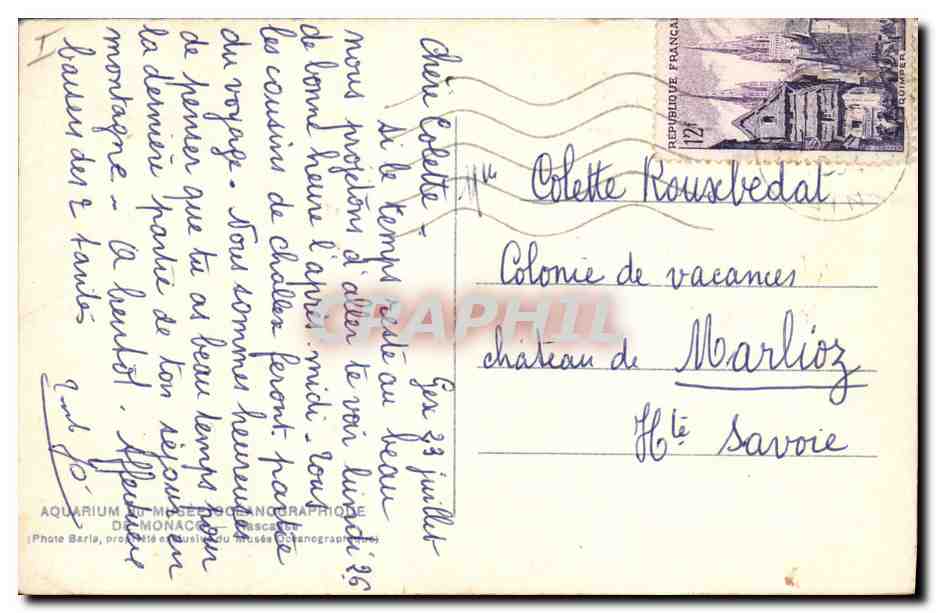 Gex 23 juillet
Chère Colette -
si le temps reste au beau
nous projetons d'aller te voir lundi 26
de bonne heure l'après-midi - tous
les cousins de challex feront partie
du voyage - Nous sommes heureuses
de penser que tu as beau temps pour
la dernière partie de ton séjour en
montagne - A bientôt. Affectueux
baisers des 2 tantes
RÉPUBLIQUE FRANÇAISE
12f
QUIMPER
Mlle Colette Rouxbedat
Colonie de vacances
château de Marlioz
Hte Savoie
CRAPHIL
AQUARIUM DU MUSÉE OCÉANOGRAPHIQUE
DE MONACO — Rascasse
(Photo Barla, propriété exclusive du Musée Océanographique)